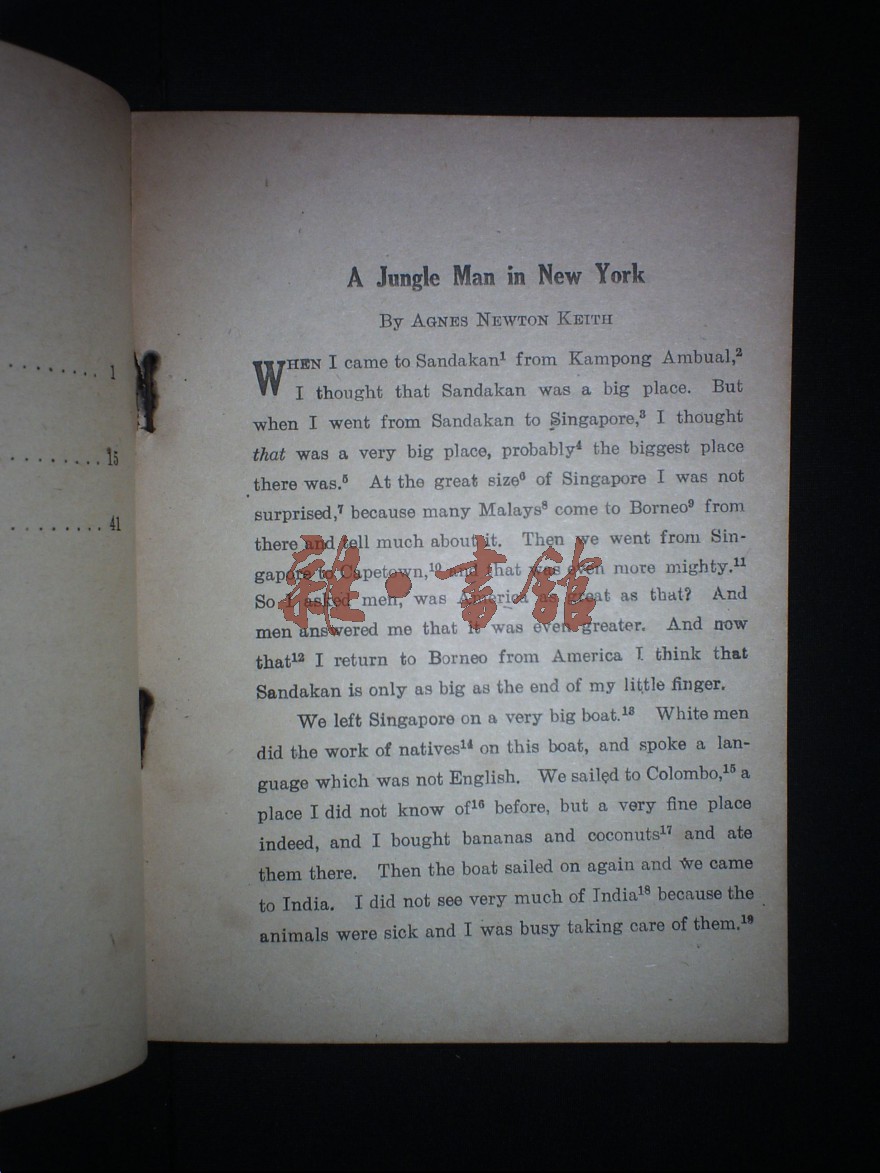 ........ 1
........ 15
........ 41
A Jungle Man in New York
By AGNES NEWTON KEITH
WHEN I came to Sandakan¹ from Kampong Ambual,²
I thought that Sandakan was a big place. But
when I went from Sandakan to Singapore,³ I thought
that was a very big place, probably⁴ the biggest place
there was.⁵ At the great size⁶ of Singapore I was not
surprised,⁷ because many Malays⁸ come to Borneo⁹ from
there and tell much about it. Then we went from Sin-
gapore to Capetown,¹⁰ and that was even more mighty.¹¹
So I asked men, was America as great as that? And
men answered me that it was even greater. And now
that¹² I return to Borneo from America I think that
Sandakan is only as big as the end of my little finger.
We left Singapore on a very big boat.¹³ White men
did the work of natives¹⁴ on this boat, and spoke a lan-
guage which was not English. We sailed to Colombo,¹⁵ a
place I did not know of¹⁶ before, but a very fine place
indeed, and I bought bananas and coconuts¹⁷ and ate
them there. Then the boat sailed on again and we came
to India. I did not see very much of India¹⁸ because the
animals were sick and I was busy taking care of them.¹⁹
雜·書館